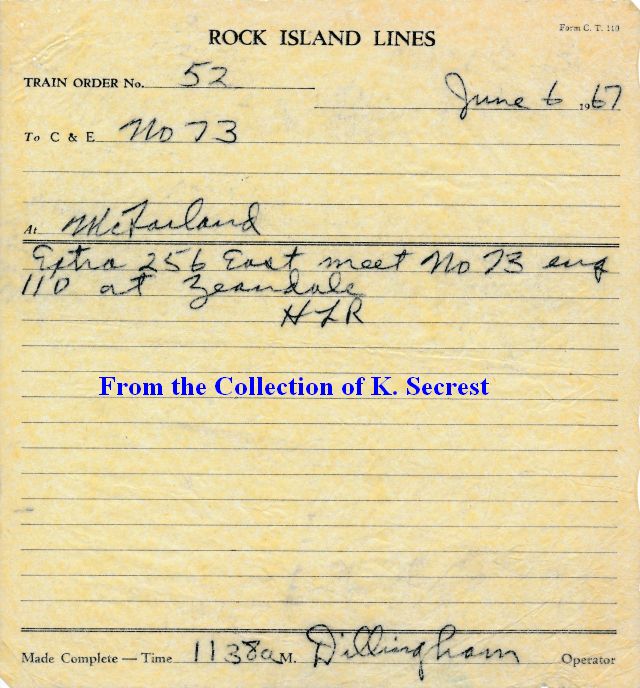 Form C. T. 110
ROCK ISLAND LINES
TRAIN ORDER No. 52
June 6 1967
To C & E No 73
At McFarland
Extra 256 East meet No 73 eng
110 at Zeandale
HLR
From the Collection of K. Secrest
Made Complete — Time 1138a M. Dillingham Operator